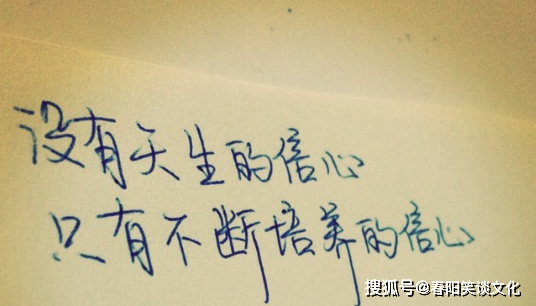 没有天生的信心
只有不断培养的信心
搜狐号@春阳笑谈文化